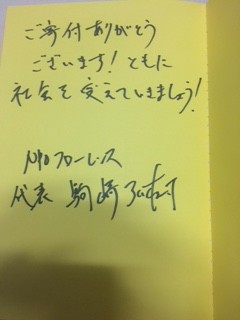 ご寄付ありがとう
ございます！ともに
社会を変えていきましょう！
NPOフローレンス
代表 駒崎